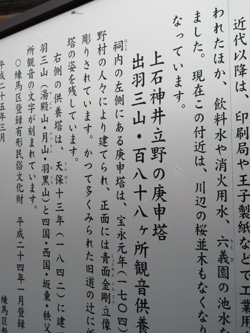 近代以降は、印刷局や王子製紙などで工業用
われたほか、飲料水や消火用水、六義園の池水な
ました。現在この付近は、川辺の桜並木もなくな
なっています。
上石神井立野の庚申塔
出羽三山・百八十八ヶ所観音供養
祠内の左側にある庚申塔は、宝永元年(一七〇四)
野村の人々により建てられ、正面には青面金剛立像
彫りされています。かつて多くみられた旧道の辻に
塔の姿を残しています。
右側の供養塔は、天保十三年(一八四二)に建
羽三山(湯殿山・月山・羽黒山)と四国・西国・坂東・秩父
所観音の文字が刻まれています。
○練馬区登録有形民俗文化財 平成二十四年一月登録
平成二十五年三月
練馬区